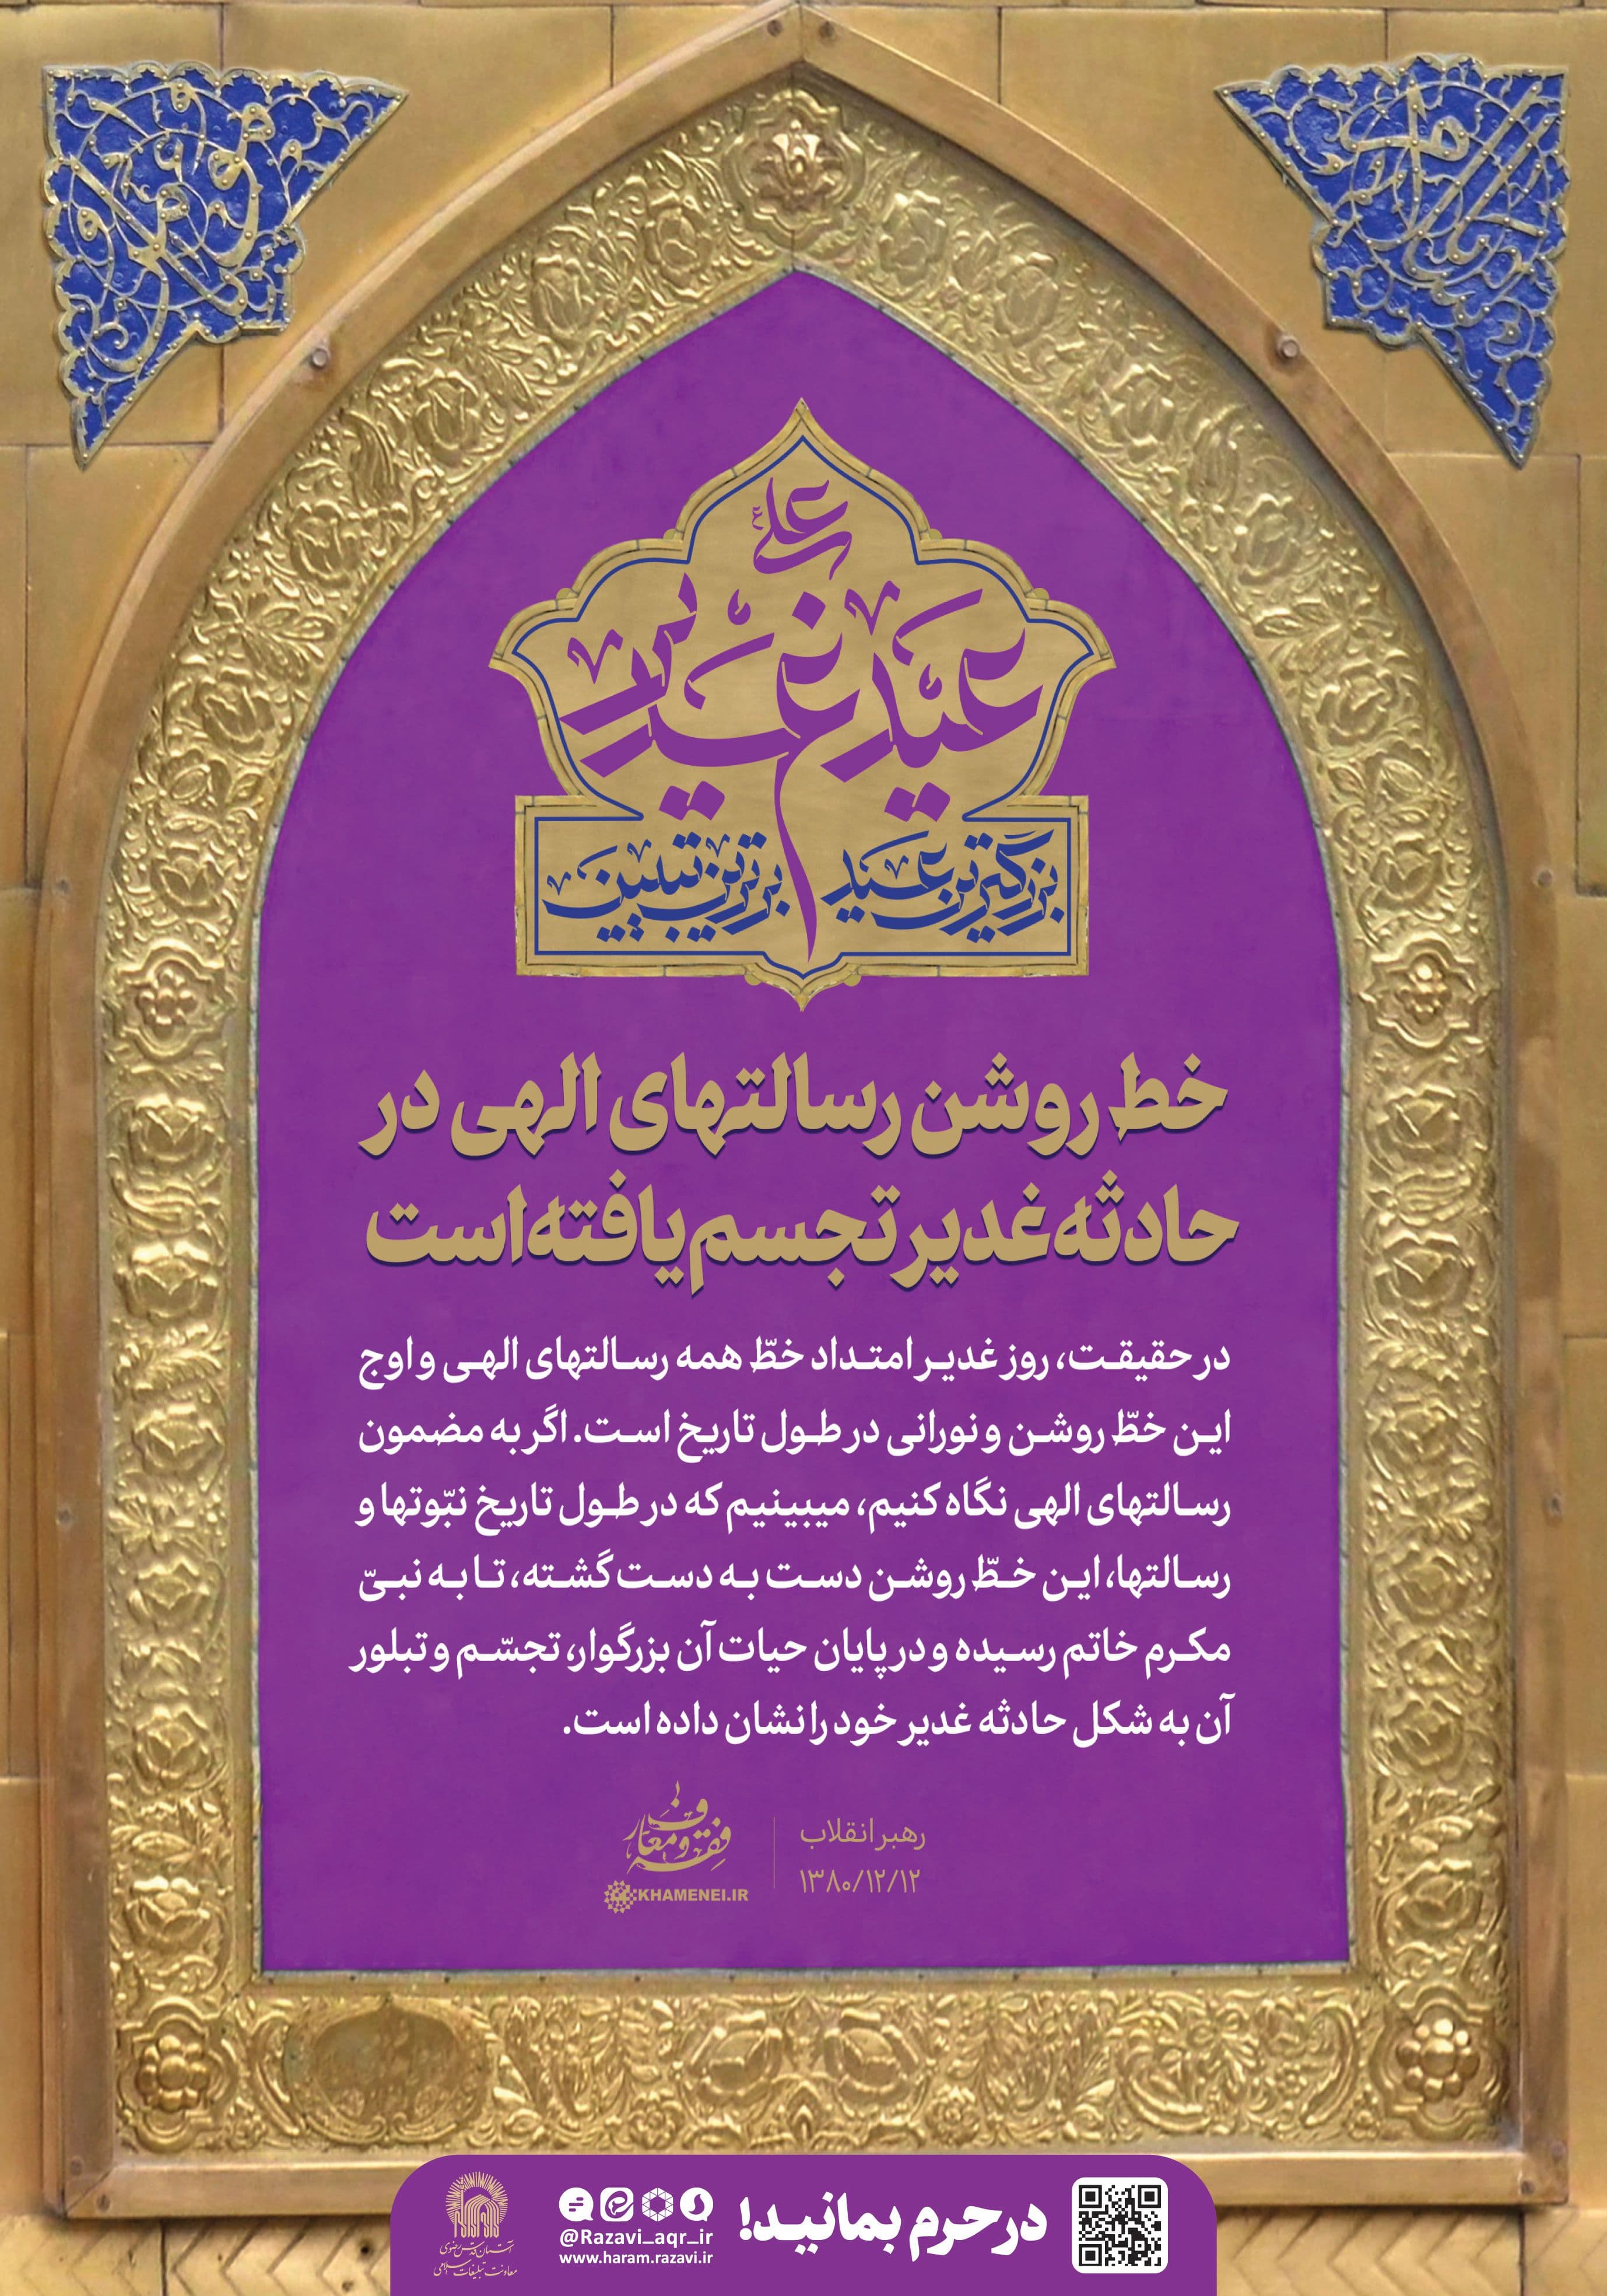 علی
عید غدیر
بزرگترین عید برترین تبیین
خط روشن رسالتهای الهی در
حادثه غدیر تجسم یافته است
در حقیقت، روز غدیر امتداد خطّ همه رسالتهای الهی و اوج
این خطّ روشن و نورانی در طول تاریخ است. اگر به مضمون
رسالتهای الهی نگاه کنیم، میبینیم که در طول تاریخ نبّوتها و
رسالتها، این خطّ روشن دست به دست گشته، تا به نبیّ
مکرم خاتم رسیده و در پایان حیات آن بزرگوار، تجسّم و تبلور
آن به شکل حادثه غدیر خود را نشان داده است.
رهبر انقلاب
۱۳۸۰/۱۲/۱۲
فقه و معارف
KHAMENEI.IR
در حرم بمانید!
@Razavi_aqr_ir
www.haram.razavi.ir
آستان قدس رضوی
معاونت تبلیغات اسلامی